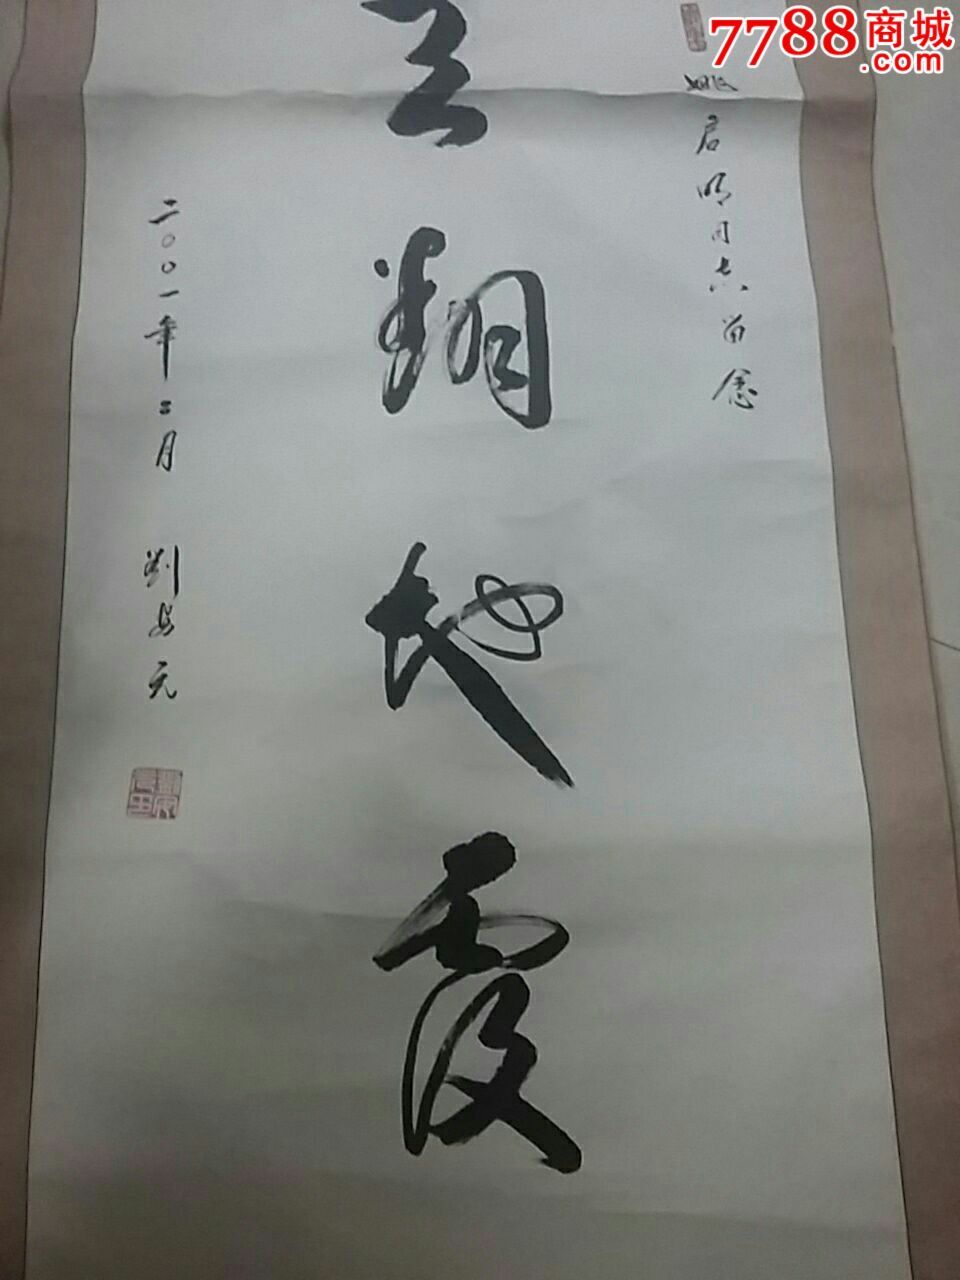 7788商城
.com
启明同志留念
云翔地霞
二〇〇一年二月 刘安元